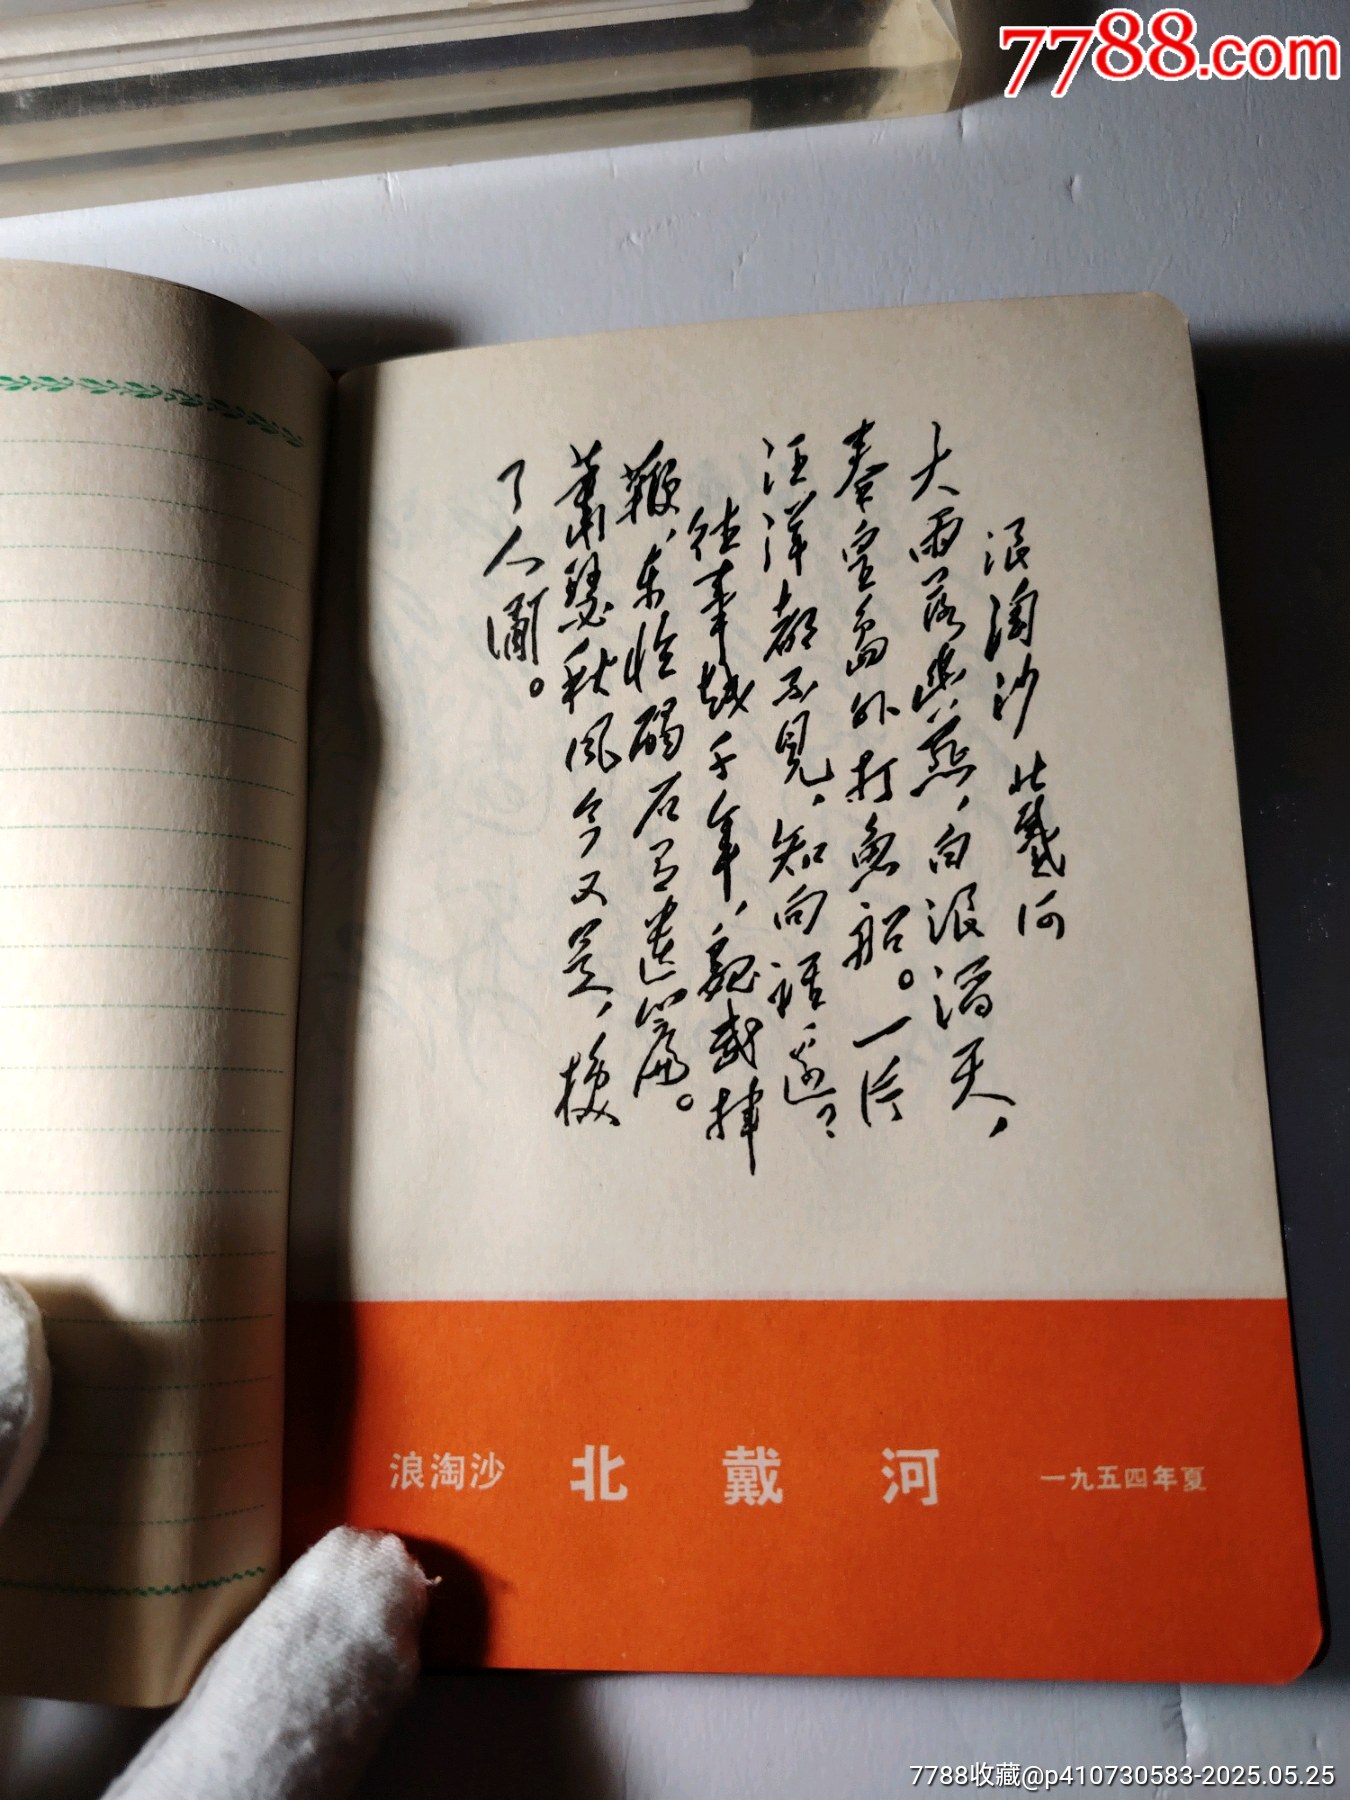 7788.com
浪淘沙 北戴河
大雨落幽燕，白浪滔天，
秦皇島外打魚船。一片
汪洋都不見，知向誰邊？
往事越千年，魏武揮
鞭，東臨碣石有遺篇。
蕭瑟秋風今又是，換
了人間。
浪淘沙 北戴河 一九五四年夏
7788收藏@p410730583-2025.05.25